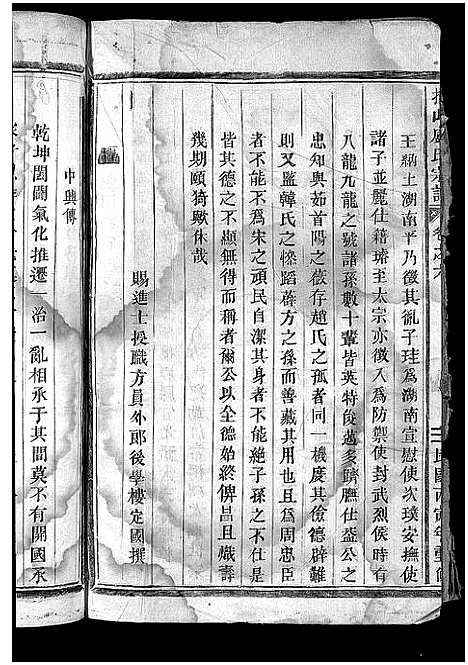 王納土湖南平乃徵其胤子珪爲湖南宣慰使次璞安撫使
諸子並麗仕籍璿至太宗亦徵入爲防禦使封武烈侯時有
八龍九龍之號諸孫數十輩皆英特俊邁多躋膴仕盍公之
忠知與茹首陽之薇存趙氏之孤者同一機度其儉德辟難
則又監韓氏之慘蹈蕣方之孫而善藏其用也且爲周忠臣
者不能不爲宋之頑民自潔其身者不能絕子孫之不仕此
皆其德之不顯無得而稱者爾公以全德始終俾昌且熾壽
幾期頤猗歟休哉
賜進士授職方員外郎後學樓定國撰
中興傳
乾坤闔闢氣化推遷一治一亂相承于其間莫不有開國承
氏宗譜
卷之六
民國丙寅年重修